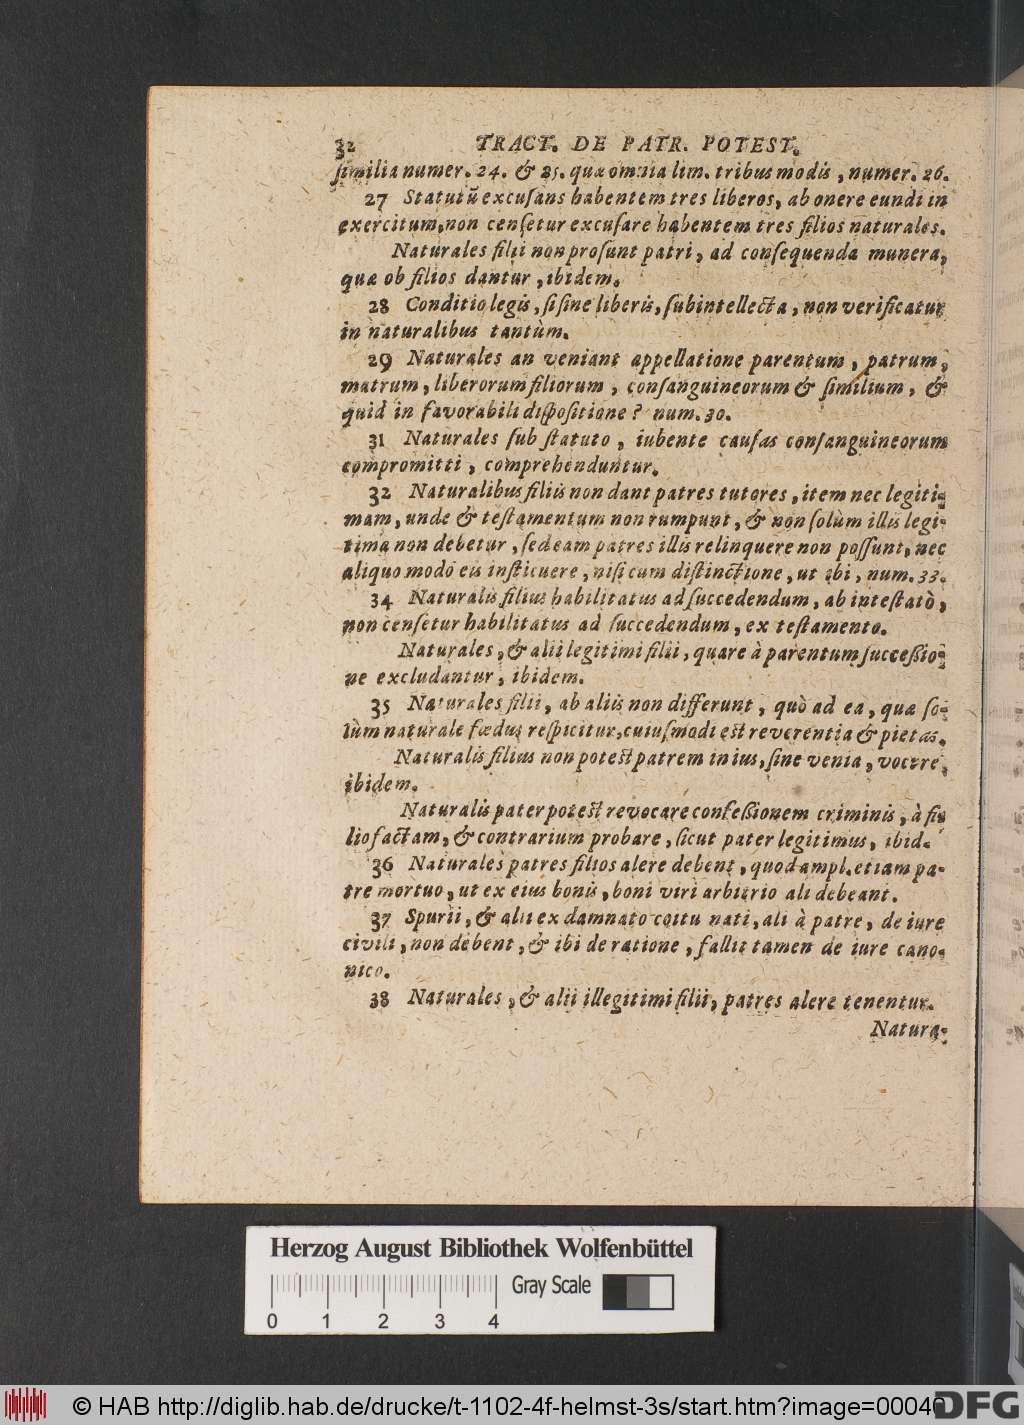 32 TRACT. DE PATR. POTEST.
ſimilia numer. 24. & 25. quæ omnia lim. tribus modis, numer. 26.
27 Statutũ excuſans habentem tres liberos, ab onere eundi in
exercitum, non cenſetur excuſare habentem tres filios naturales.
Naturales filii non proſunt patri, ad conſequenda munera,
quæ ob filios dantur, ibidem.
28 Conditio legis, ſi ſine liberis, ſubintellecta, non verificatur
in naturalibus tantùm.
29 Naturales an veniant appellatione parentum, patrum,
matrum, liberorum filiorum, conſanguineorum & ſimilium, &
quid in favorabili diſpoſitione? num. 30.
31 Naturales ſub ſtatuto, iubente cauſas conſanguineorum
compromitti, comprehenduntur.
32 Naturalibus filiis non dant patres tutores, item nec legiti-
mam, unde & teſtamentum non rumpunt, & non ſolùm illis legi-
tima non debetur, ſed eam patres illis relinquere non poſſunt, nec
aliquo modo eis inſtituere, niſi cum diſtinctione, ut ibi, num. 33.
34 Naturalis filius habilitatus ad ſuccedendum, ab inteſtatò,
non cenſetur habilitatus ad ſuccedendum, ex teſtamento.
Naturales, & alii legitimi filii, quare à parentum ſucceßio-
ne excludantur, ibidem.
35 Naturales filii, ab aliis non differunt, quò ad ea, quæ ſo-
lùm naturale fœdus reſpicitur, cuiuſmodi eſt reverentia & pietas.
Naturalis filius non poteſt patrem in ius, ſine venia, vocere,
ibidem.
Naturalis pater poteſt revocare confeßionem criminis, à fi-
lio factam, & contrarium probare, ſicut pater legitimus, ibid.
36 Naturales patres filios alere debent, quod ampl. etiam pa-
tre mortuo, ut ex eius bonis, boni viri arbitrio ali debeant.
37 Spurii, & alii ex damnato coitu nati, ali à patre, de iure
civili, non debent, & ibi de ratione, fallit tamen de iure cano-
nico.
38 Naturales, & alii illegitimi filii, patres alere tenentur.
Natura-
Herzog August Bibliothek Wolfenbüttel
Gray Scale
0 1 2 3 4
© HAB http://diglib.hab.de/drucke/t-1102-4f-helmst-3s/start.htm?image=00040
DFG